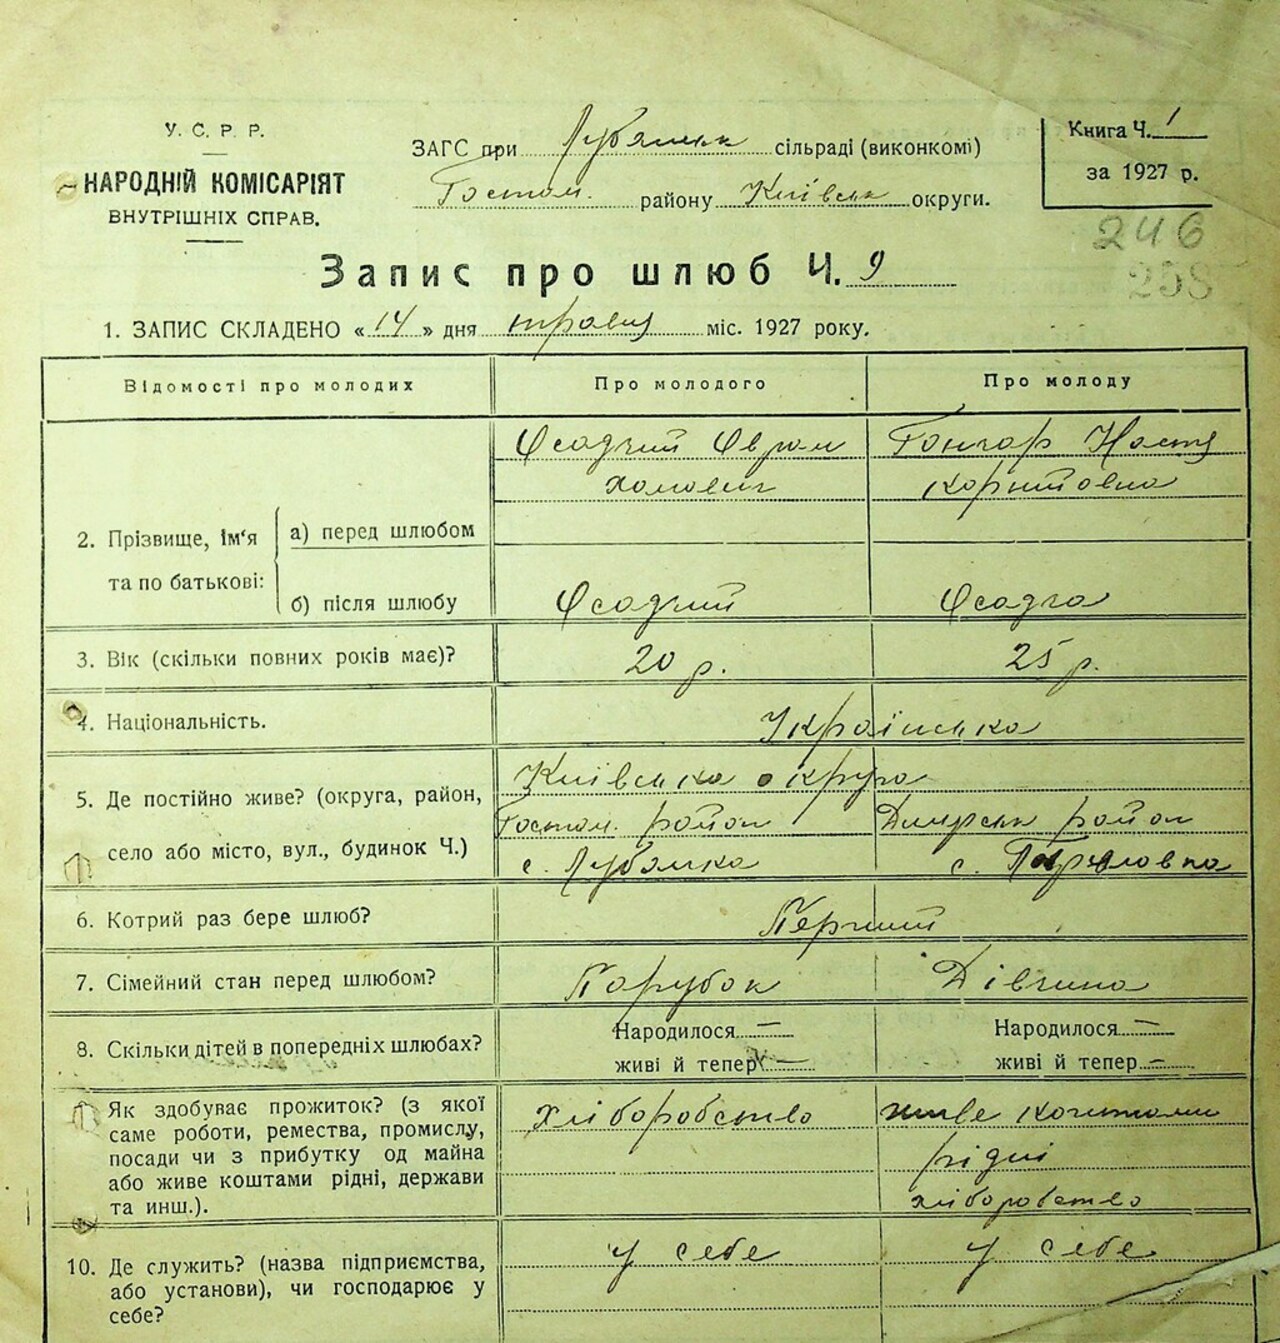 У. С. Р. Р.
НАРОДНІЙ КОМІСАРІЯТ
ВНУТРІШНІХ СПРАВ.
ЗАГС при Лубянськ сільраді (виконкомі)
Гостом. району Київськ округи.
Книга Ч. 1
за 1927 р.
246
258
Запис про шлюб Ч. 9
1. ЗАПИС СКЛАДЕНО « 14 » дня травня міс. 1927 року.
Відомості про молодих Про молодого Про молоду
Осадчий Оврам Гончар Настя
Хомович
2. Прізвище, ім‘я та по батькові:
а) перед шлюбом
б) після шлюбу Осадчий Осадча
3. Вік (скільки повних років має)? 20 р. 25 р.
4. Національність. Українська
5. Де постійно живе? (округа, район, Київська округа
село або місто, вул., будинок Ч.) Гостом. район Димерськ район
с. Лубянка с.
6. Котрий раз бере шлюб? Перший
7. Сімейний стан перед шлюбом? Парубок Дівчина
8. Скільки дітей в попередніх шлюбах? Народилося — Народилося —
живі й тепер — живі й тепер —
Як здобуває прожиток? (з якої Хліборобство живе коштами
саме роботи, ремества, промислу, рідні
посади чи з прибутку од майна хліборобство
або живе коштами рідні, держави
та инш.).
10. Де служить? (назва підприємства, У себе У себе
або установи), чи господарює у
себе?